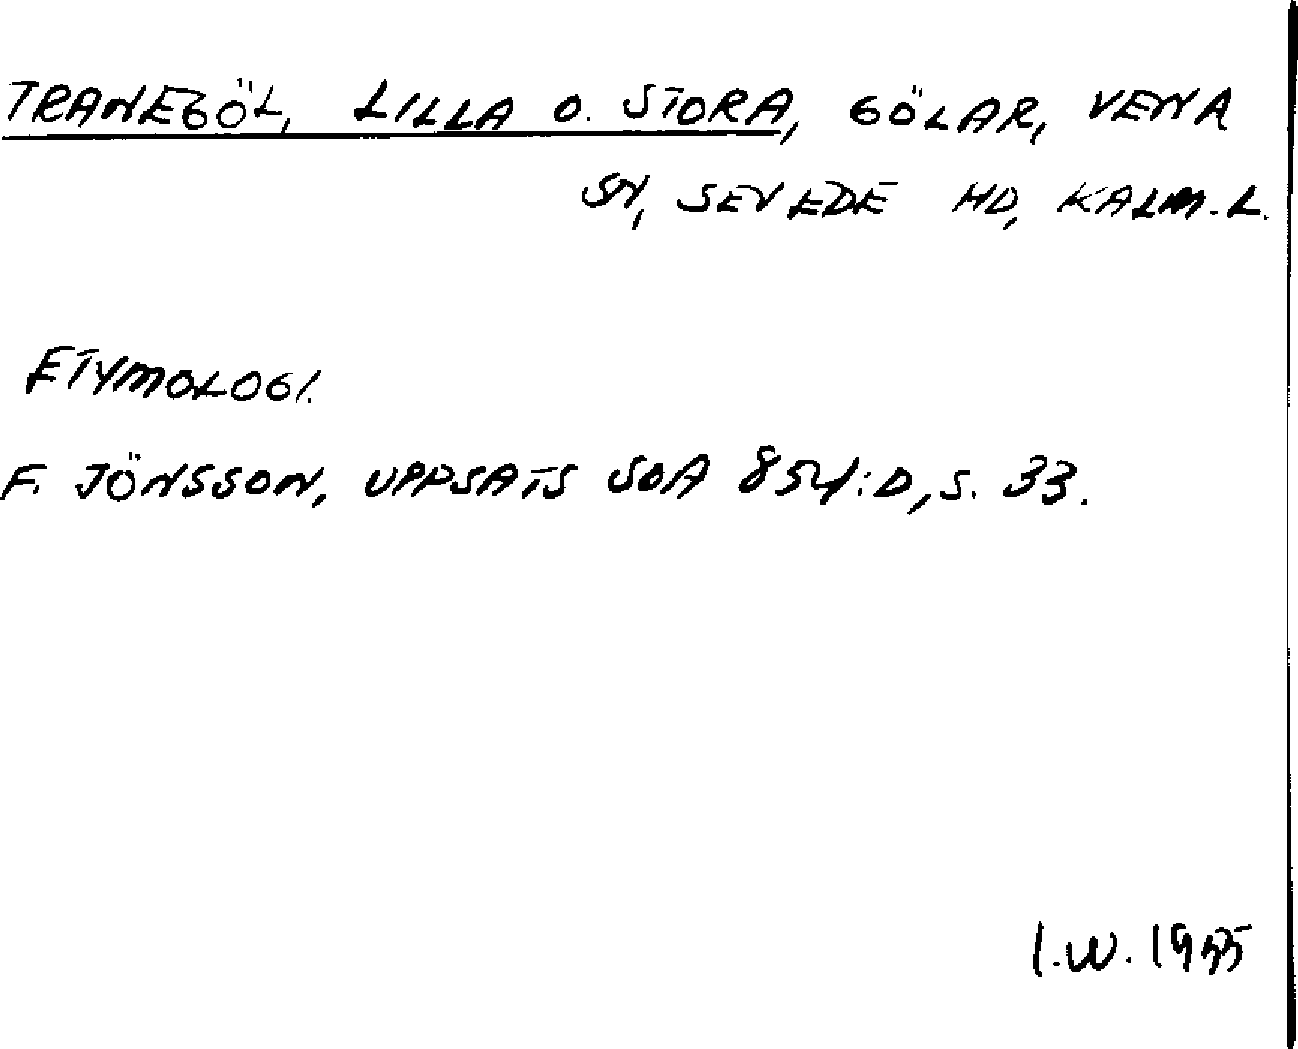 TRANEGÖL, LILLA O. STORA, GÖLAR, VENA
SN, SEVEDE HD, KALM. L.
ETYMOLOGI.
F. JÖNSSON, UPPSATS SOA 854:D, S. 33.
I.W. 1955